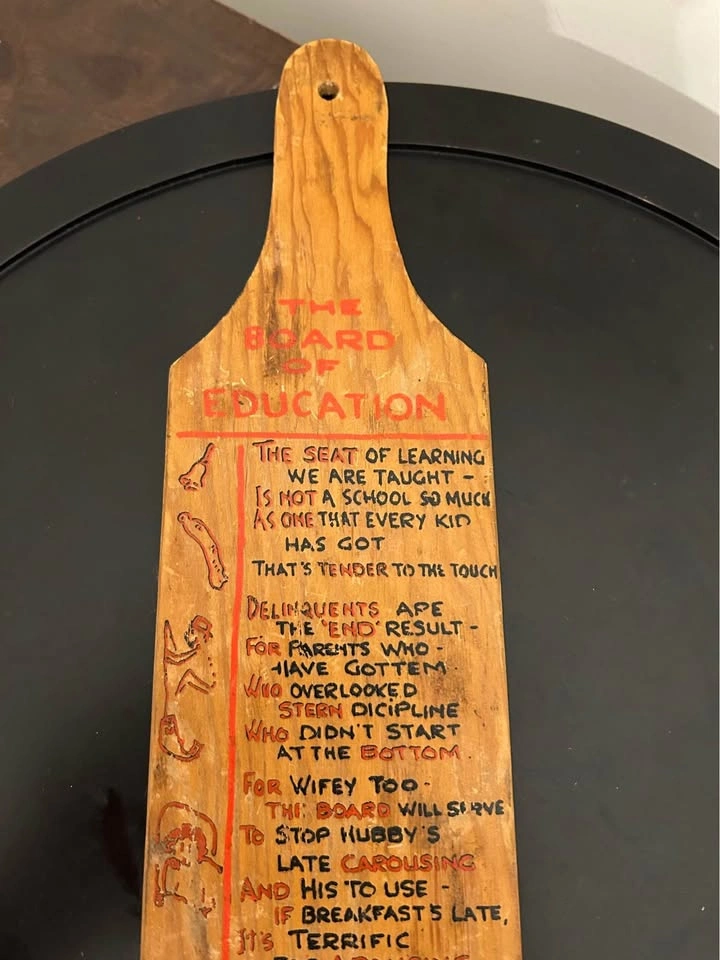 THE
BOARD
OF
EDUCATION
THE SEAT OF LEARNING
WE ARE TAUGHT -
IS NOT A SCHOOL SO MUCH
AS ONE THAT EVERY KID
HAS GOT
THAT'S TENDER TO THE TOUCH
DELINQUENTS ARE
THE 'END' RESULT -
FOR PARENTS WHO -
HAVE GOTTEM
WHO OVERLOOKED
STERN DICIPLINE
WHO DIDN'T START
AT THE BOTTOM.
FOR WIFEY TOO -
THE BOARD WILL SERVE
TO STOP HUBBY'S
LATE CAROUSING
AND HIS TO USE -
IF BREAKFAST'S LATE,
IT'S TERRIFIC